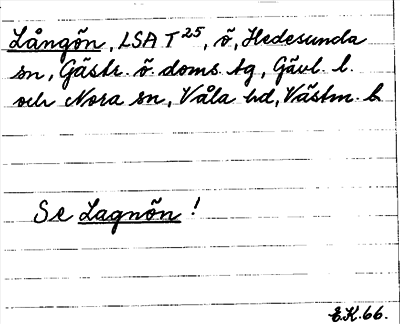 Långön, LSA T25, ö, Hedesunda
sn, Gästr. ö. doms. tg, Gävl. l.
och Nora sn, Våla hd, Västm. l.
Se Lagnön!
E.K. 66.